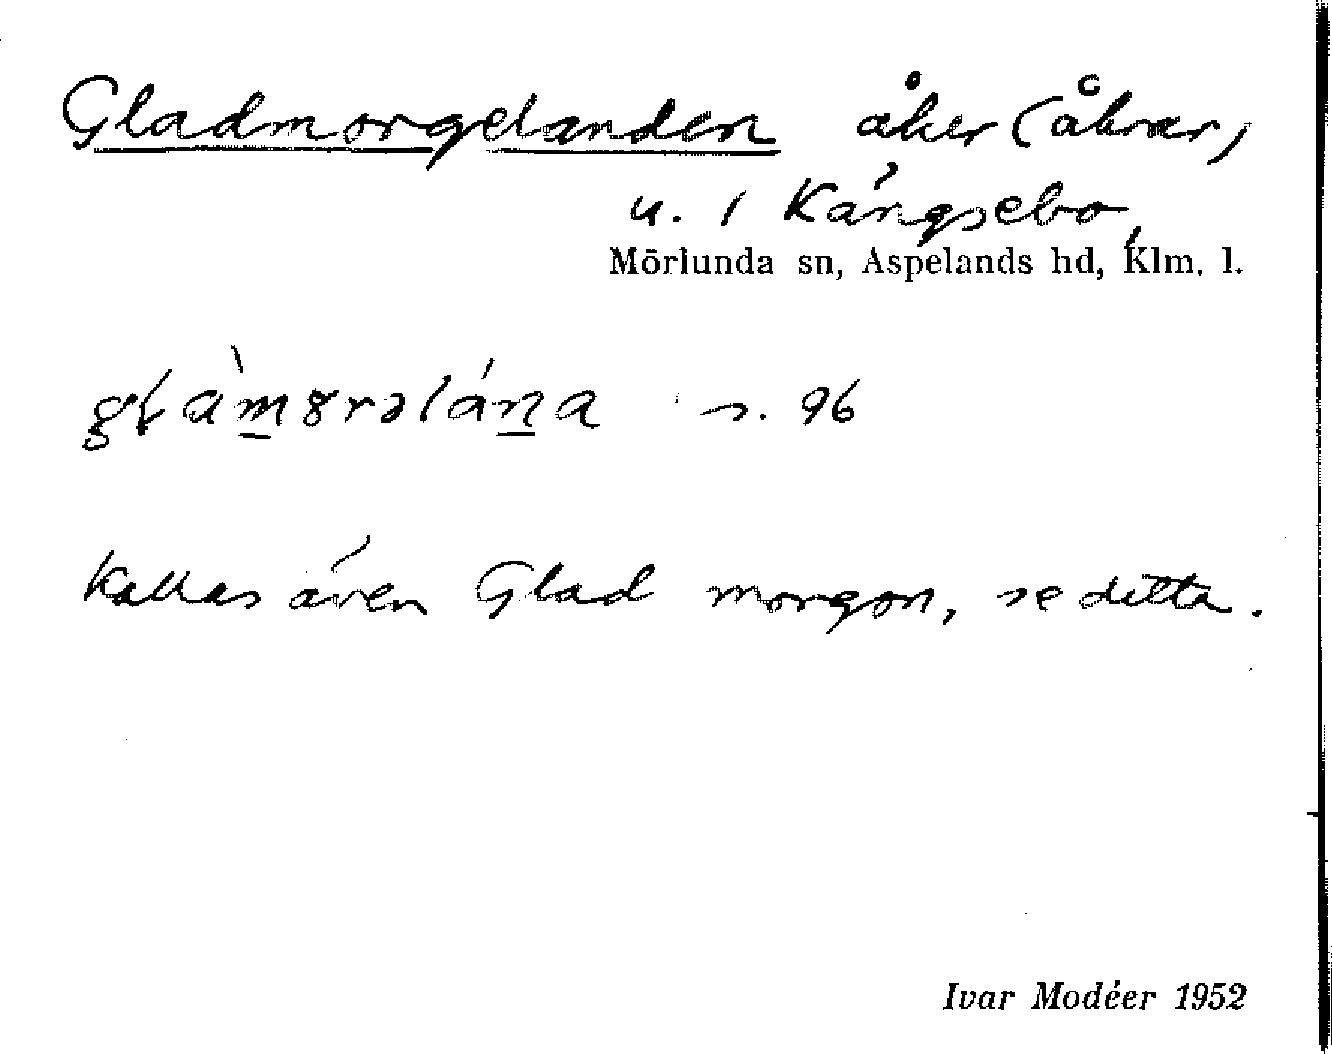 Gladmorgelanden åker (åkrar)
u. 1 Kängsebo,
Mörlunda sn, Aspelands hd, Klm. l.
s. 96
Kallas även Glad morgon, se detta.
Ivar Modéer 1952